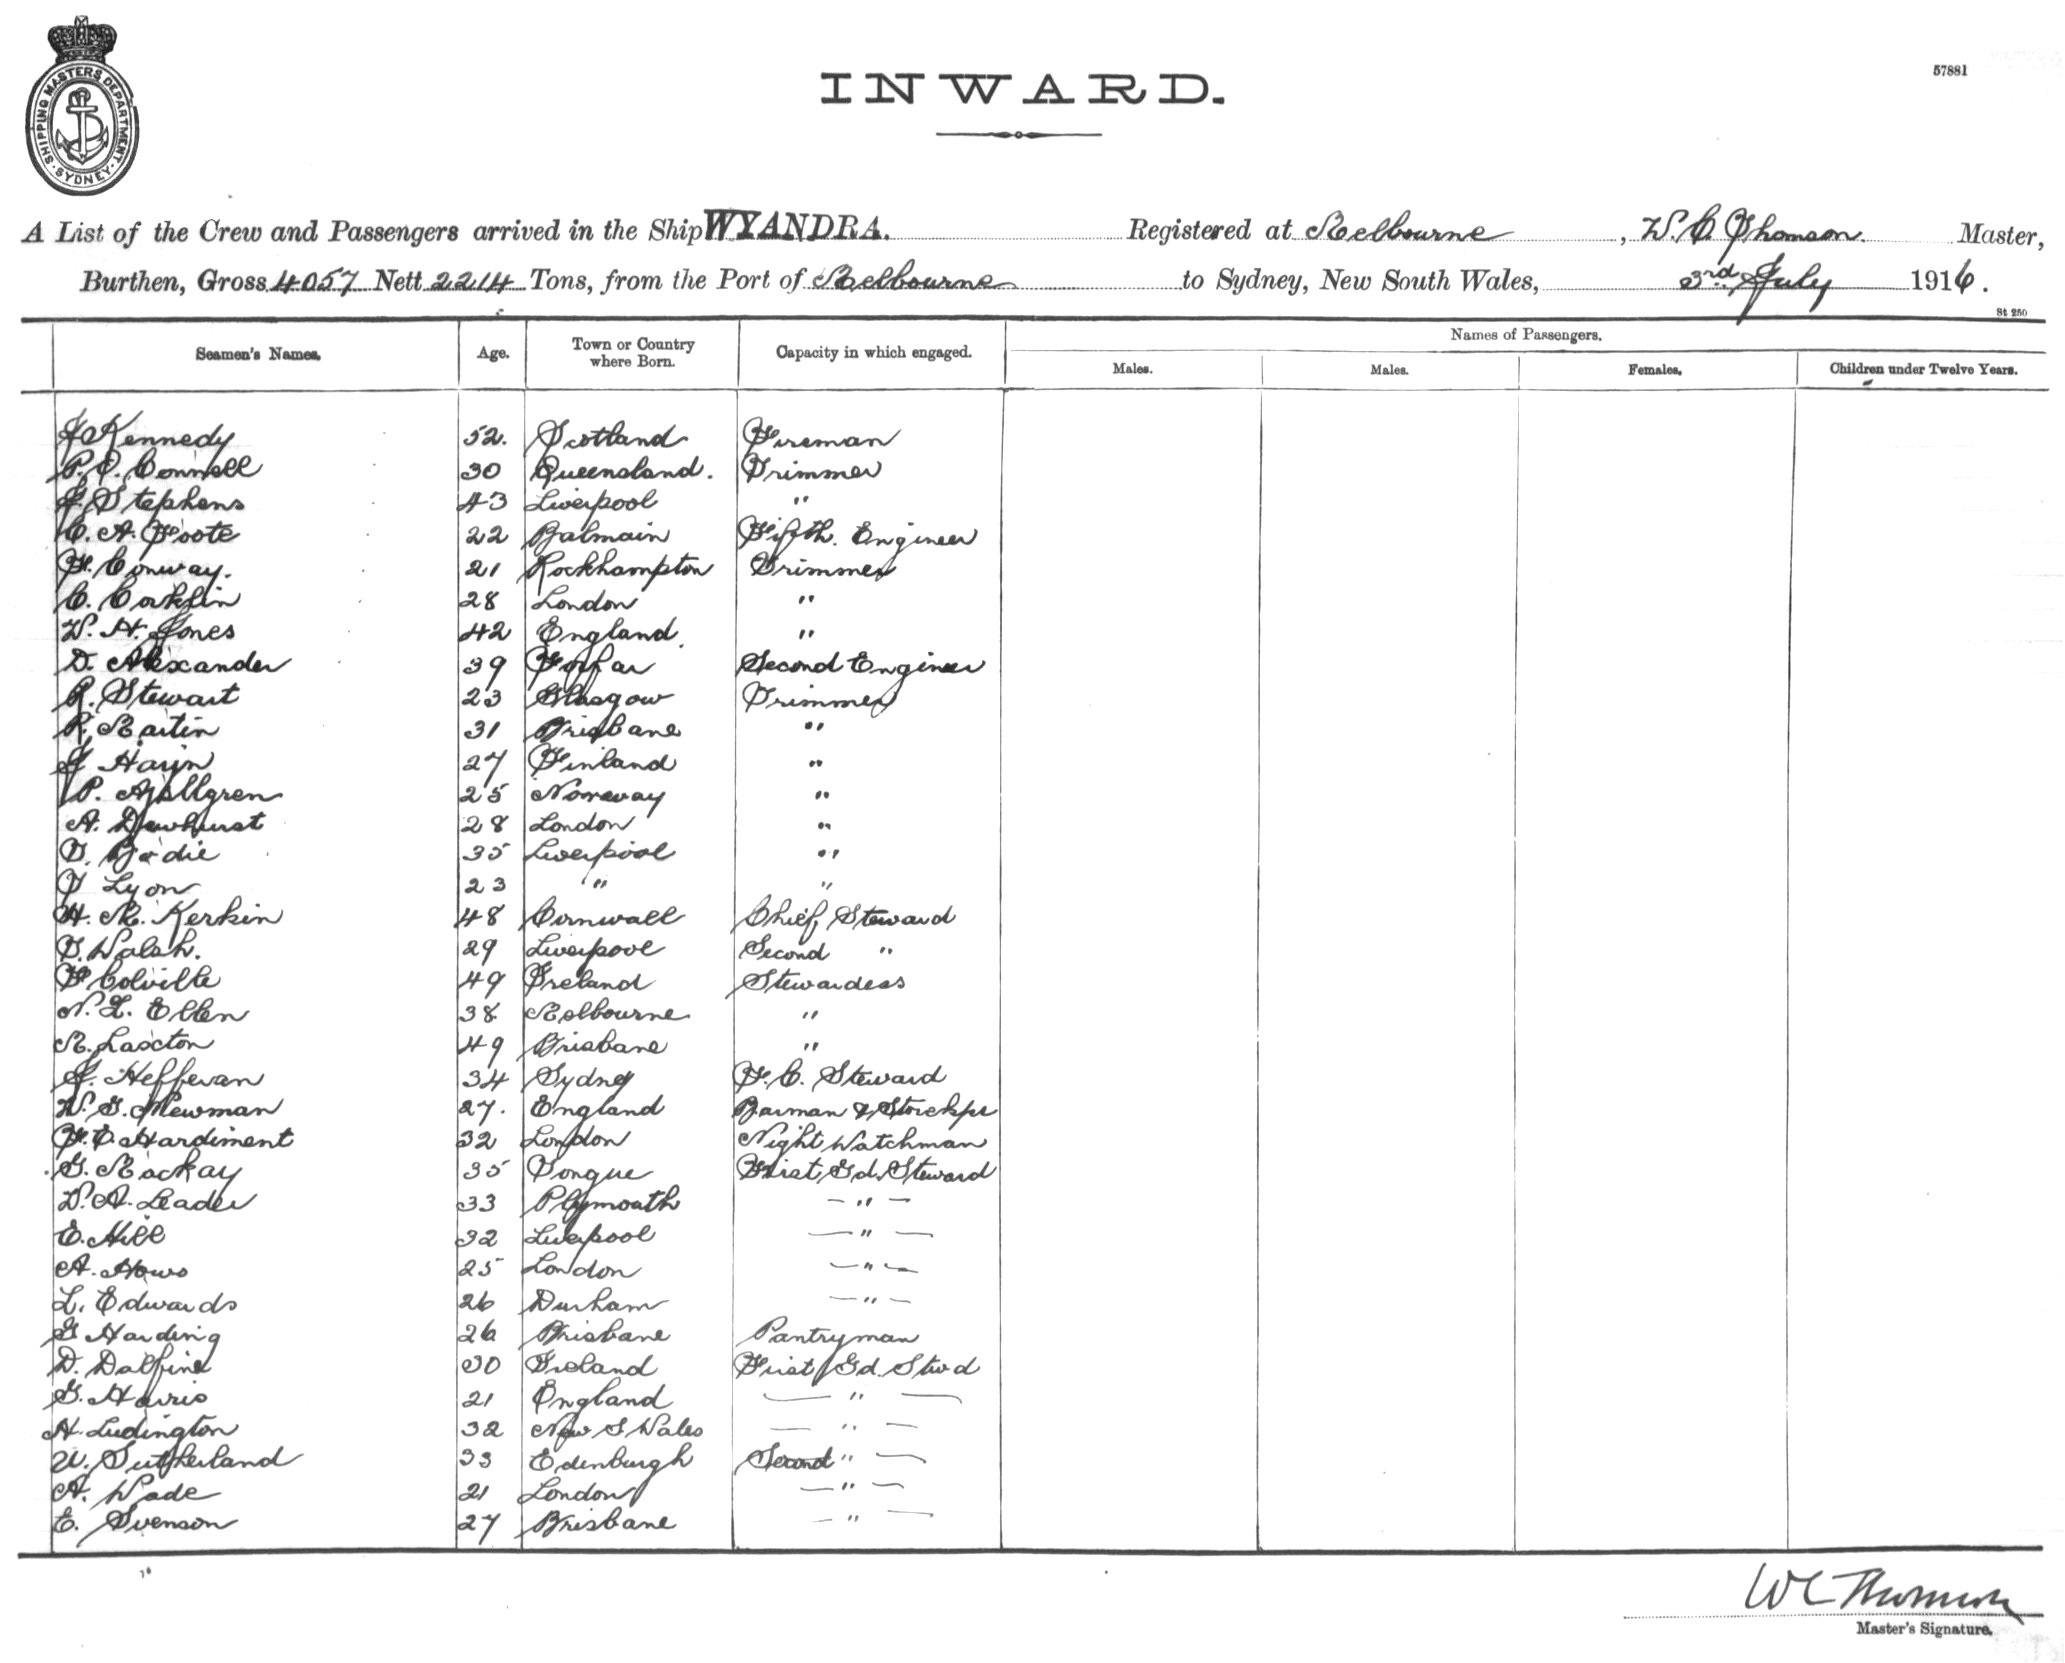 SHIPPING MASTERS DEPARTMENT
SYDNEY
INWARD.
57881
A List of the Crew and Passengers arrived in the Ship WYANDRA. Registered at Melbourne, W. C. Thomson. Master,
Burthen, Gross 4057 Nett 2214 Tons, from the Port of Melbourne to Sydney, New South Wales, 3rd July 1916.
St 250
Seamen's Names. Age. Town or Country where Born. Capacity in which engaged. Names of Passengers.
Males. Males. Females. Children under Twelve Years.
J Kennedy 52. Scotland Fireman
P. O. Connell 30 Queensland. Trimmer
J. Stephens 43 Liverpool "
C. A. Foote 22 Balmain Fifth. Engineer
F. Conway. 21 Rockhampton Trimmer
C. Corklin 28 London "
W. H. Jones 42 England. "
D. Alexander 39 Forfar Second Engineer
R. Stewart 23 Glasgow Trimmer
R. Martin 31 Brisbane "
J 27 Finland "
P. 25 Norway "
A. Dewhurst 28 London "
D. Bodie 35 Liverpool "
T Lyon 23 " "
H. M. Kerkin 48 Cornwall Chief Steward
T. Walsh. 29 Liverpool Second "
F Colville 49 Ireland Stewardess
N. L. Ellen 38 Melbourne "
M. Laxton 49 Brisbane "
J. Heffevan 34 Sydney F. C. Steward
W. G. Newman 27. England Barman & Storekpr
F. E. Hardiment 32 London Night Watchman
G. Mackay 35 Tongue First Gd. Steward
W. A. Leader 33 Plymouth — " —
E. Hill 32 Liverpool — " —
A. Hows 25 London — " —
L. Edwards 26 Durham — " —
G Harding 26 Brisbane Pantryman
D. Dalfine 30 Ireland First Gd. Stwd
G. Harris 21 England — " —
H. Ludington 32 New S Wales — " —
W. Sutherland 33 Edinburgh Second " —
A. Wade 21 London — " —
E. Svenson 27 Brisbane — " —
WC Thomson
Master's Signature.